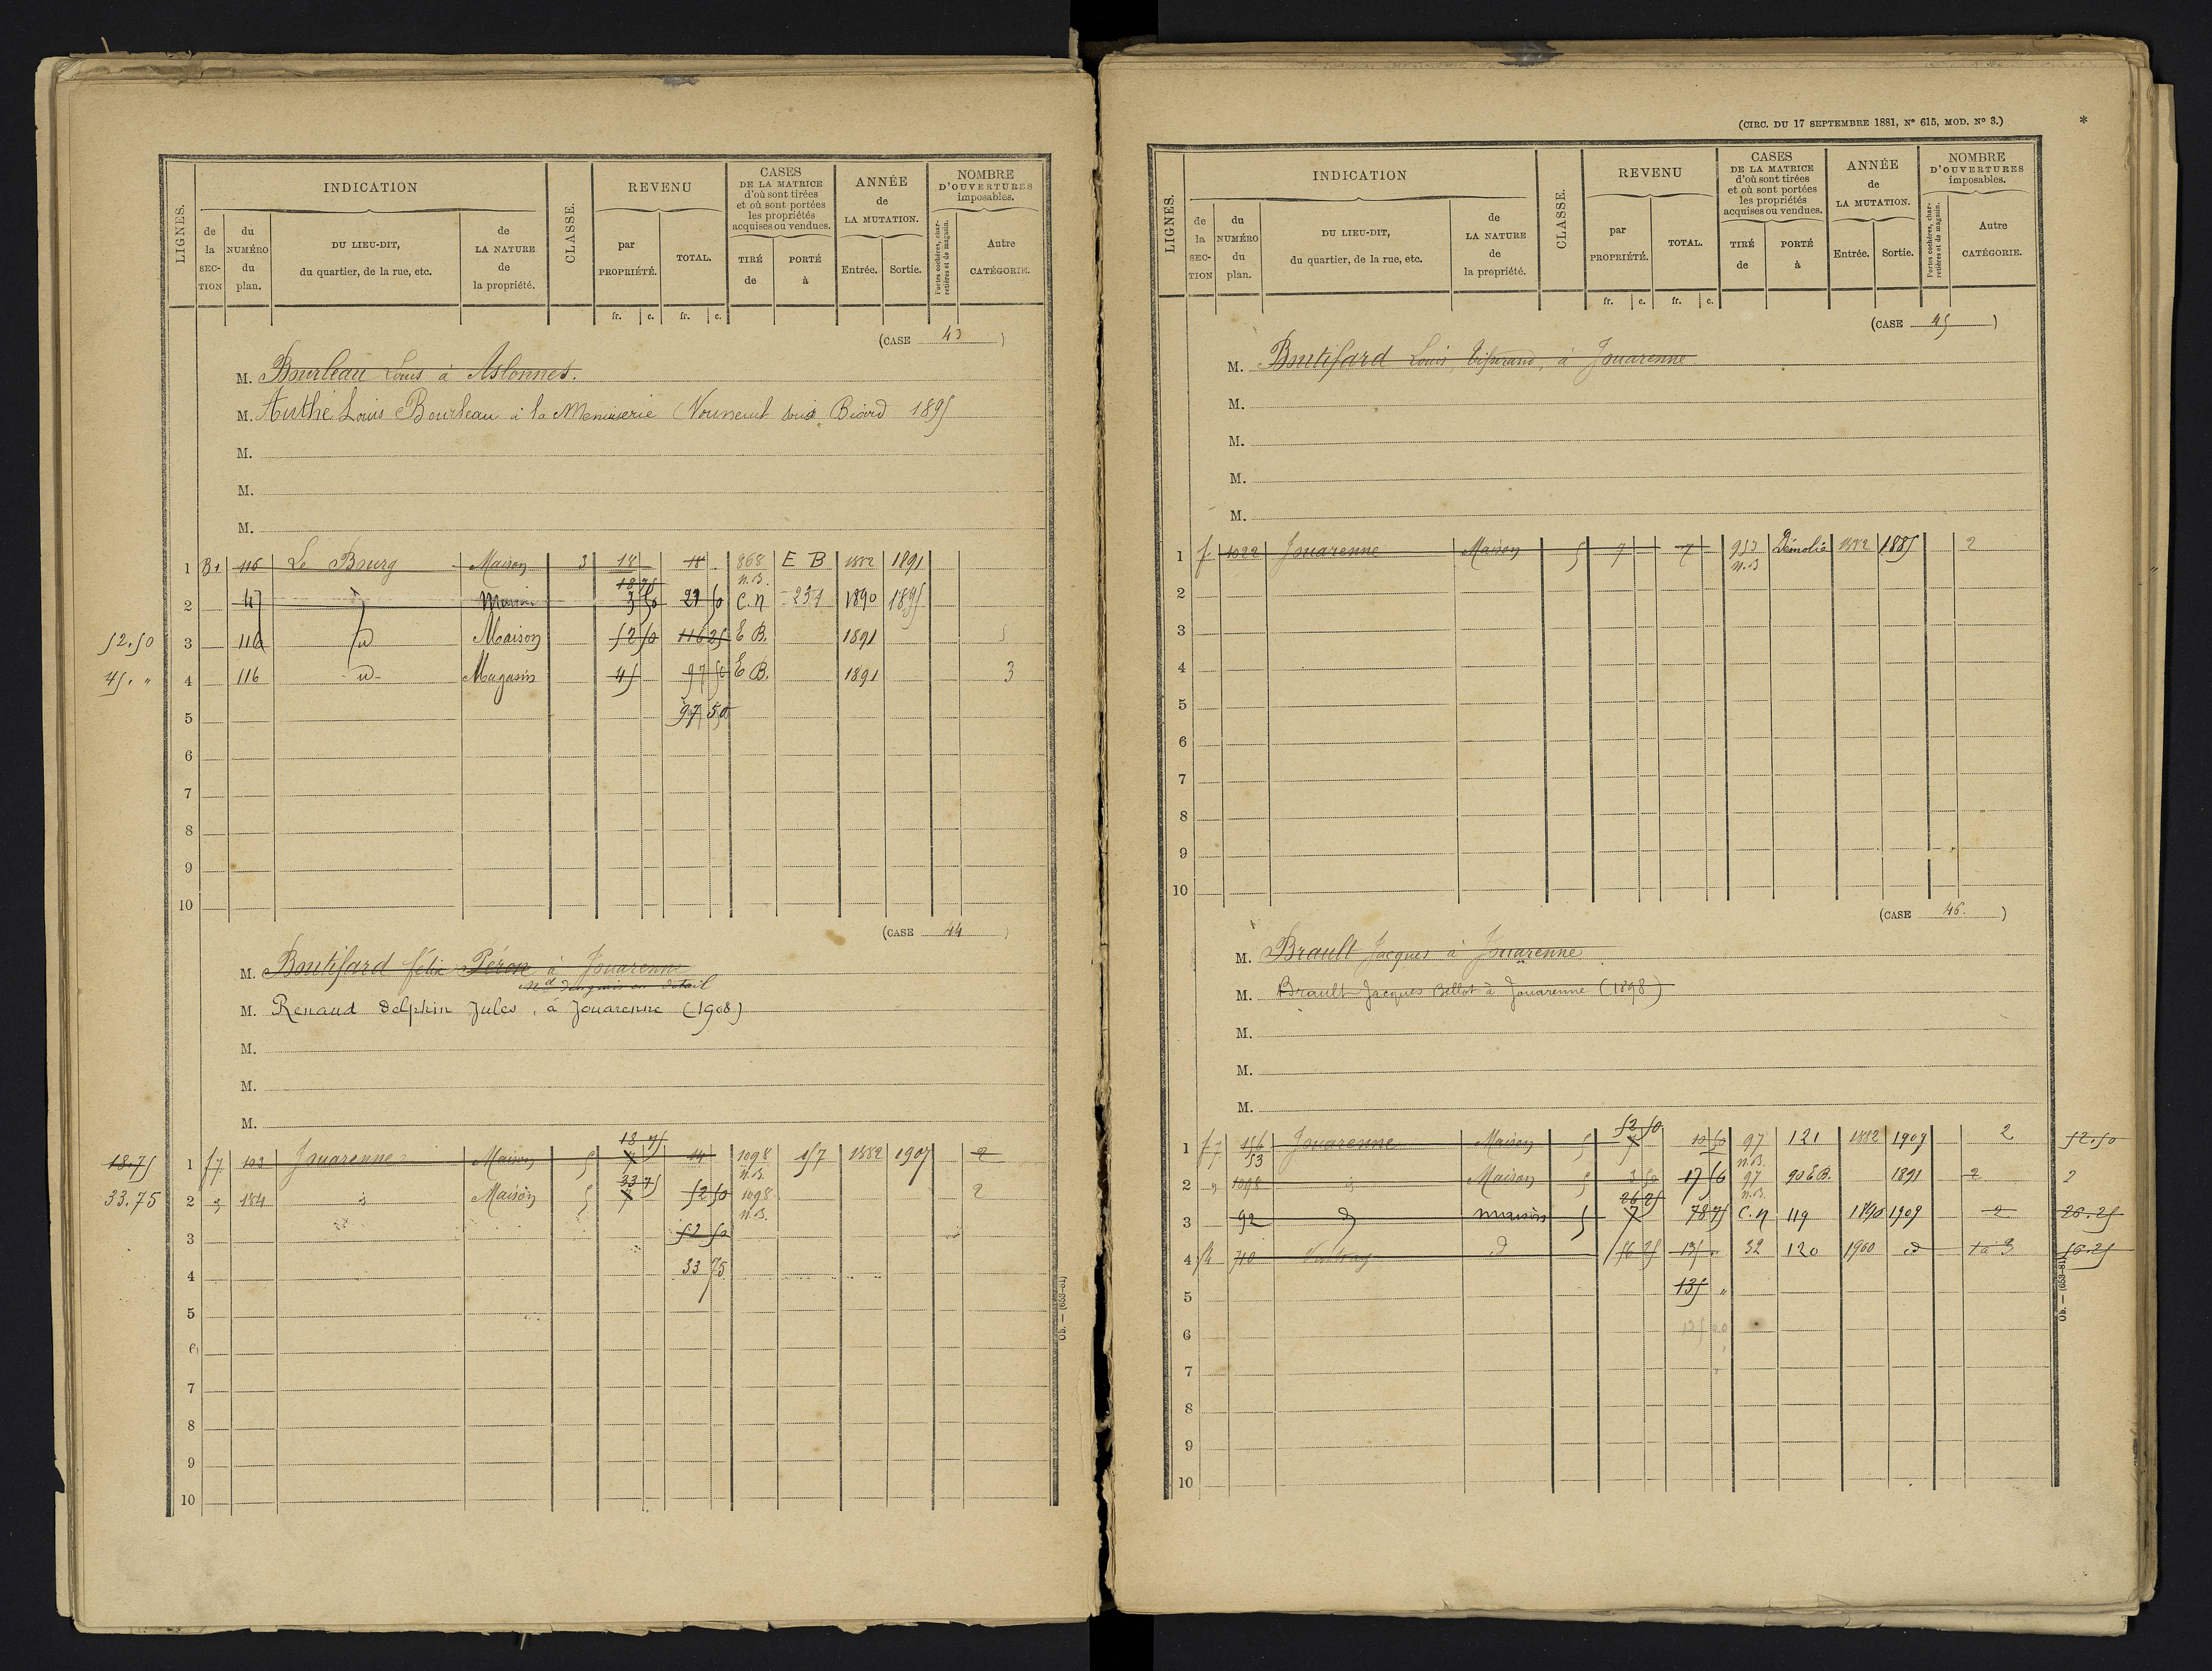 LIGNES.
INDICATION
de la SECTION
du NUMÉRO du plan.
DU LIEU-DIT, du quartier, de la rue, etc.
de LA NATURE de la propriété.
CLASSE.
REVENU
par PROPRIÉTÉ.
TOTAL.
CASES DE LA MATRICE d'où sont tirées et où sont portées les propriétés acquises ou vendues.
TIRÉ de
PORTÉ à
ANNÉE de LA MUTATION.
Entrée.
Sortie.
NOMBRE D'OUVERTURES imposables.
Portes cochères, charretières et de magasin.
Autre CATÉGORIE.
fr. c. fr. c.
(CASE 43)
M. Bourleau Louis à Aslonnes.
M. Authé Louis Bourleau à la Menuiserie (Vouneuil sous Biard 1895
M.
M.
M.
1 B1 116 Le Bourg Maison 3 18 18 868 n.B. E B 1882 1891
2 47 d Maison 18 75 3 50 21 50 C.N 231 1890 1895
52.50 3 116 d Maison 52 50 116 25 E B. 1891 5
45. " 4 116 d Magasin 45 97 50 E B. 1891 3
5 97 50
6
7
8
9
10
(CASE 44)
M. Boutifard félix Péron à Jouarenne
Md d'engrais en détail
M. Renaud Delphin Jules, à Jouarenne (1908)
M.
M.
M.
18.75 1 f7 103 Jouarenne Maison 5 18 75 7 14 1098 n.B. 157 1882 1907 2
33.75 2 " 184 d Maison 5 33 75 7 52 50 1098 n.B. 2
3 52 50
4 33 75
5
6
7
8
9
10
Ob. — (653-81)
(CIRC. DU 17 SEPTEMBRE 1881, N° 615, MOD. N° 3.)
*
LIGNES.
INDICATION
de la SECTION
du NUMÉRO du plan.
DU LIEU-DIT, du quartier, de la rue, etc.
de LA NATURE de la propriété.
CLASSE.
REVENU
par PROPRIÉTÉ.
TOTAL.
CASES DE LA MATRICE d'où sont tirées et où sont portées les propriétés acquises ou vendues.
TIRÉ de
PORTÉ à
ANNÉE de LA MUTATION.
Entrée.
Sortie.
NOMBRE D'OUVERTURES imposables.
Portes cochères, charretières et de magasin.
Autre CATÉGORIE.
fr. c. fr. c.
(CASE 45)
M. Boutifard Louis, à Jouarenne
M.
M.
M.
M.
1 f. 1022 Jouarenne Maison 5 7 7 953 n.B Démolie 1882 1885 2
2
3
4
5
6
7
8
9
10
(CASE 46.)
M. Brault Jacques à Jouarenne
M. Brault Jacques Bellot à Jouarenne (1898)
M.
M.
M.
1 f7 156 53 Jouarenne Maison 5 52 50 7 10 50 97 n.B. 121 1882 1909 2 52.50
2 " 1098 d Maison 5 3 50 17 50 97 n.B. 90 E B. 1891 2 2
3 92 d maison 5 26 25 7 78 75 C.N 119 1896 1909 2 26.25
4 f4 710 d 56 25 135 " 32 120 1900 d 1 à 3 56.25
5 135 "
6
7
8
9
10
Ob. — (653-81)